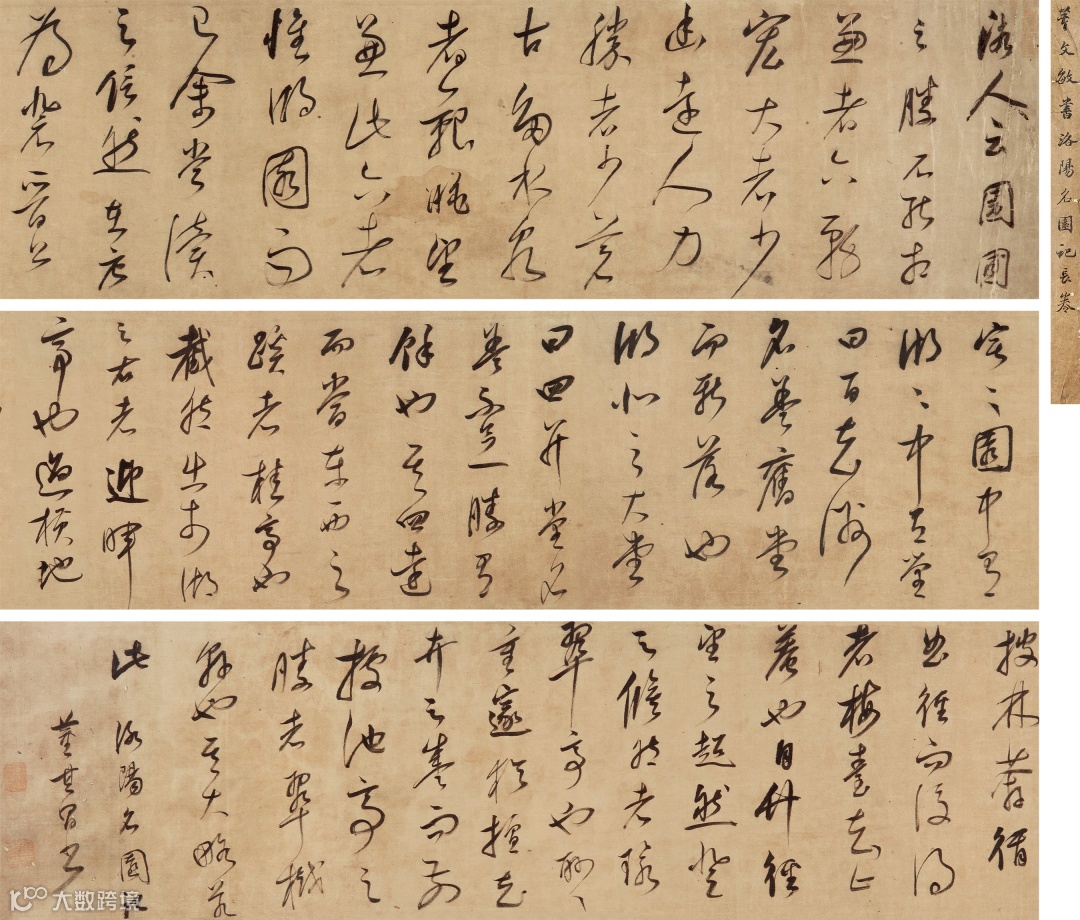 董文敏書洛陽名園記長卷
洛人云園圃
之勝不能相
兼者六務
宏大者少
幽邃人力
勝者少蒼
古多水泉
者艱眺望
兼此六者
惟湖園而
已余嘗讀
之信然在唐
為裴晉公
宅々園中有
湖々中有堂
曰百花洲
名蓋舊堂
而新落也
湖北之大堂
曰四并堂名
蓋不足勝有
餘也其四達
而當東西之
蹊者桂亭也
截然出於湖
之右者迎暉
亭也過橫地
披林莽循
曲徑而後得
者梅臺知止
菴也自竹徑
望之超然登
之翛然者環
翠亭也眇々
重邃猶擅花
卉之盛而前
據池亭之
勝者翠樾
軒也其大略若
此 洛陽名園記
董其昌書
大数跨境